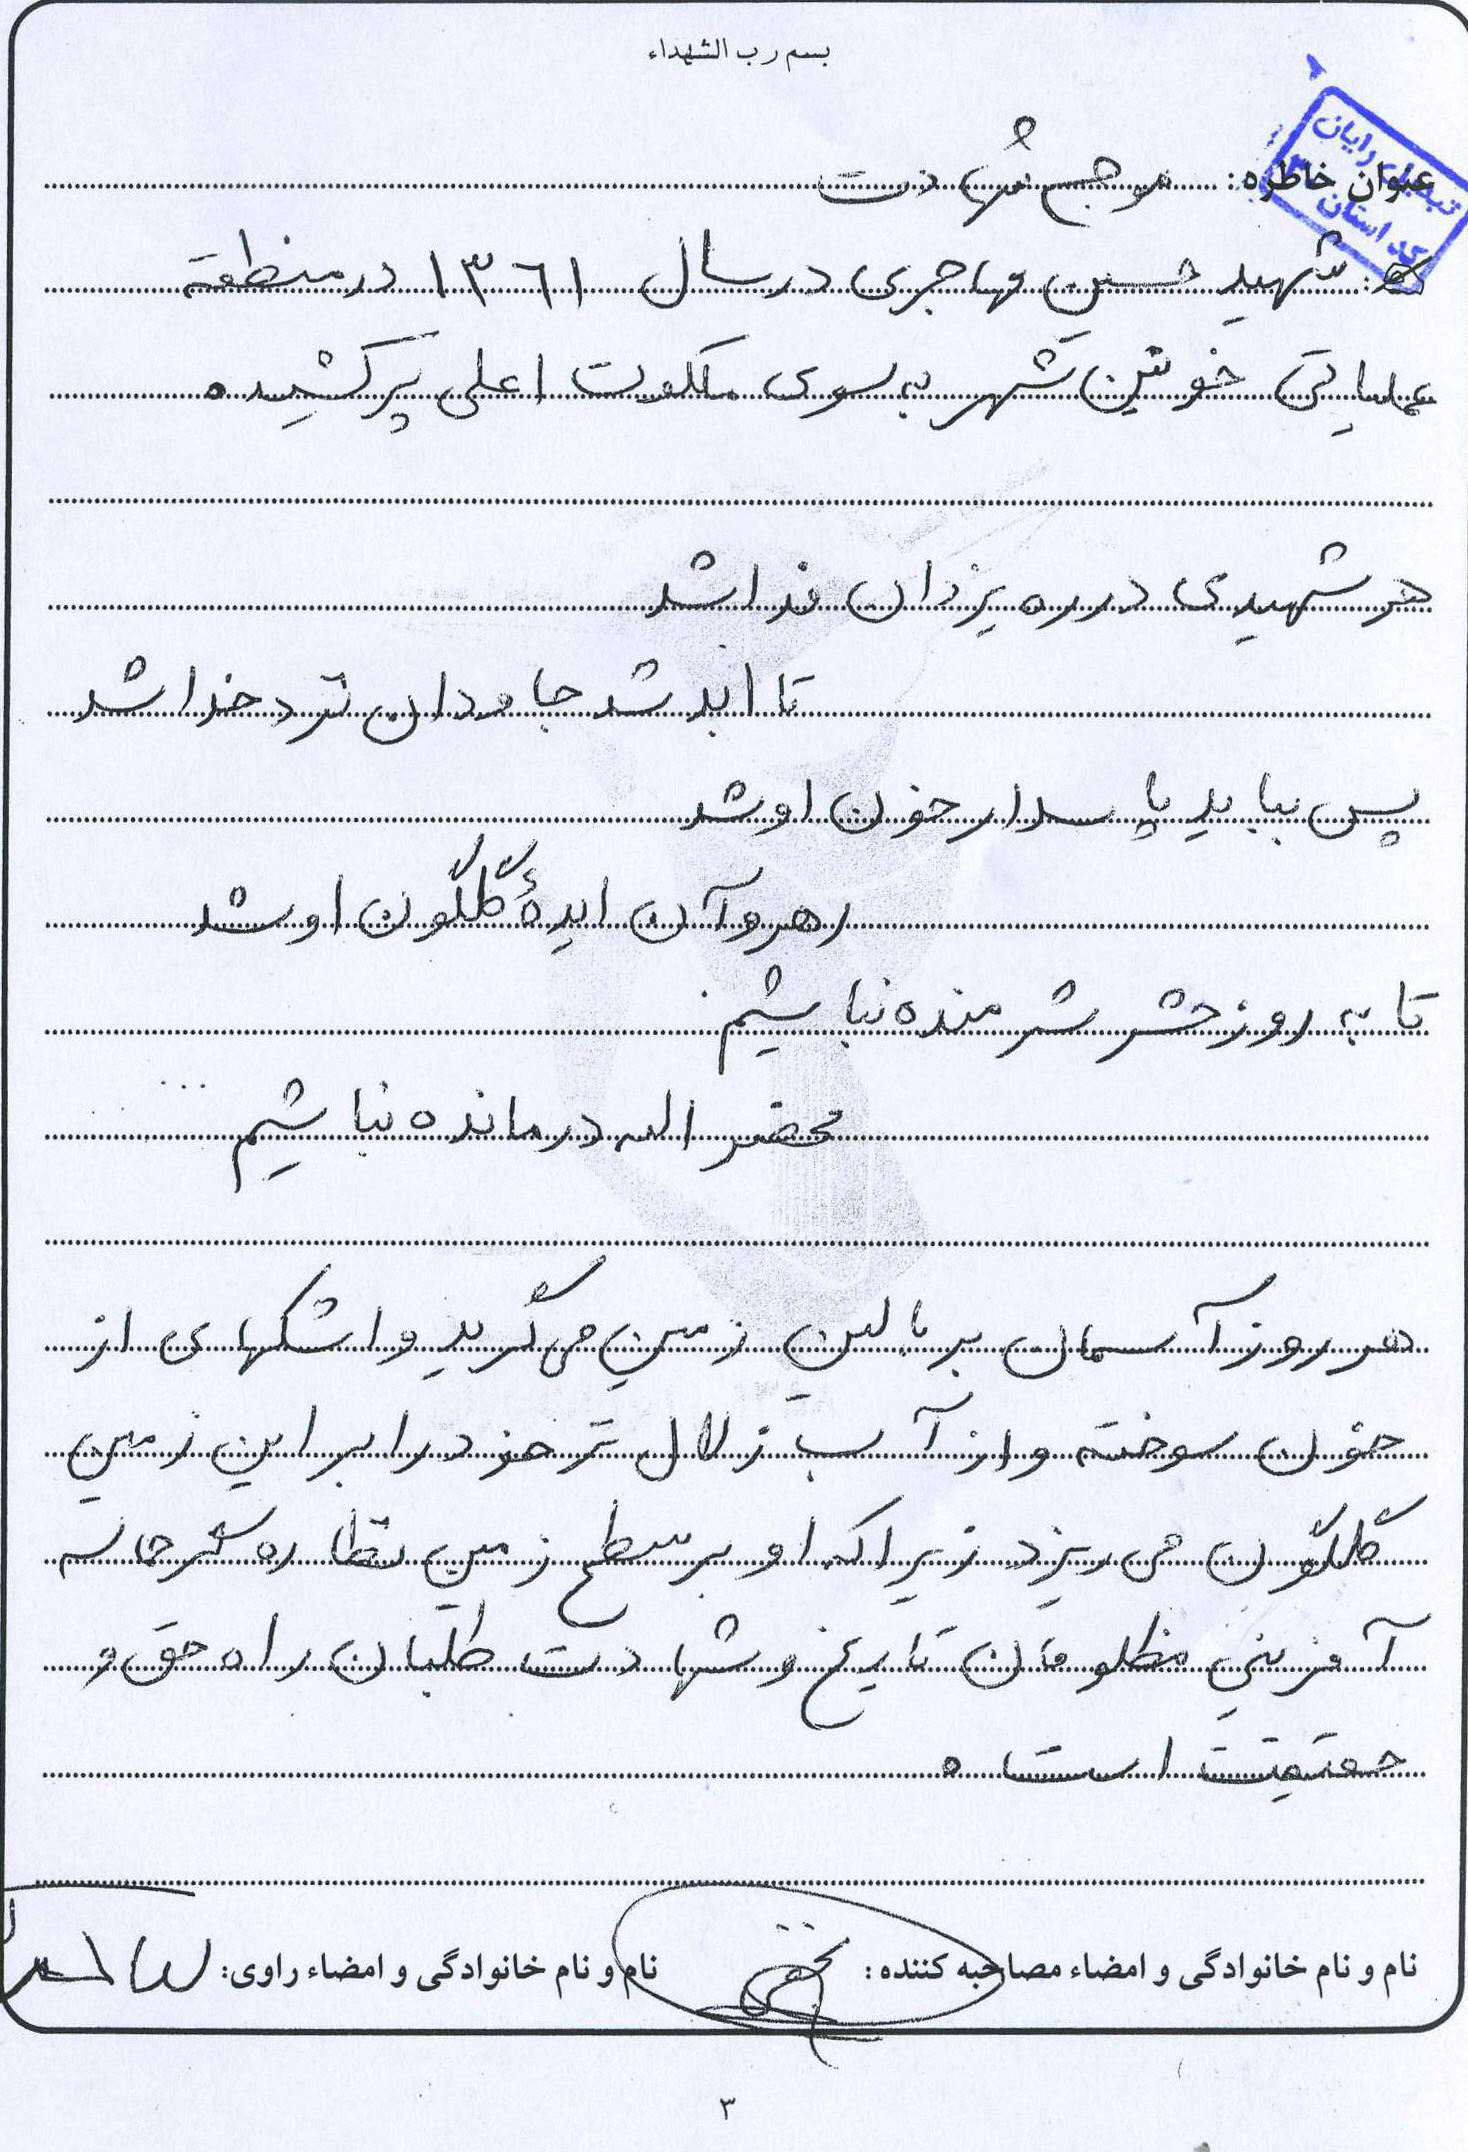 بسم رب الشهداء
عنوان خاطره: موج شهادت
شهید حسین مهاجری در سال ۱۳۶۱ در منطقه
عملیاتی خونین شهر به سوی ملکوت اعلی پر کشیده
هر شهیدی در ره یزدان فدا شد
تا ابد شد جاودان نزد خدا شد
پس بباید پاسدار خون او شد
رهرو آن ایدهٔ گلگون او شد
تا به روز حشر شرمنده نباشیم
محضر الله درمانده نباشیم ...
هر روز آسمان بر بالین زمین می گرید و اشکهای از
خون سوخته و از آب زلال تر خود را بر این زمین
گلگون می ریزد زیرا که او بر سطح زمین نظاره گر حماسه
آفرینی مظلومان تاریخ و شهادت طلبان راه حق و
حقیقت است ۰
نام و نام خانوادگی و امضاء مصاحبه کننده: نام و نام خانوادگی و امضاء راوی:
۳